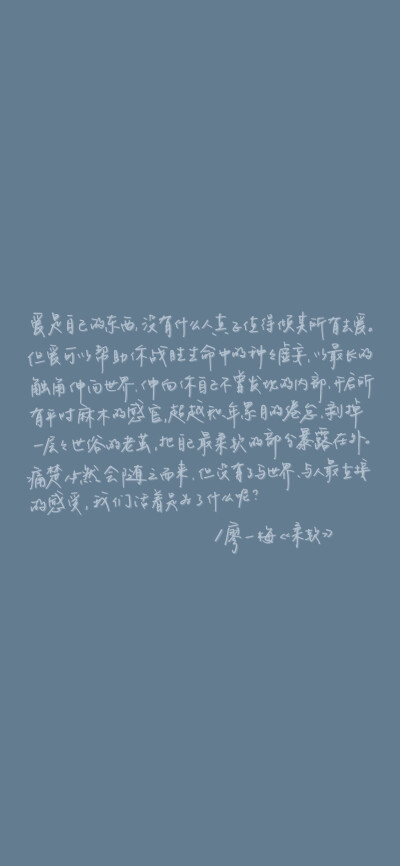 爱是自己的东西,没有什么人真正值得倾其所有去爱。
但爱可以帮助你战胜生命中的种种虚妄,以最长的
触角伸向世界,伸向你自己不曾发现的内部,开启所
有平时麻木的感官,超越积年累月的倦怠,剥掉
一层层世俗的老茧,把自己最柔软的部分暴露在外。
痛楚必然会随之而来,但没有了与世界、与人最直接
的感受,我们活着是为了什么呢?
/廖一梅《柔软》